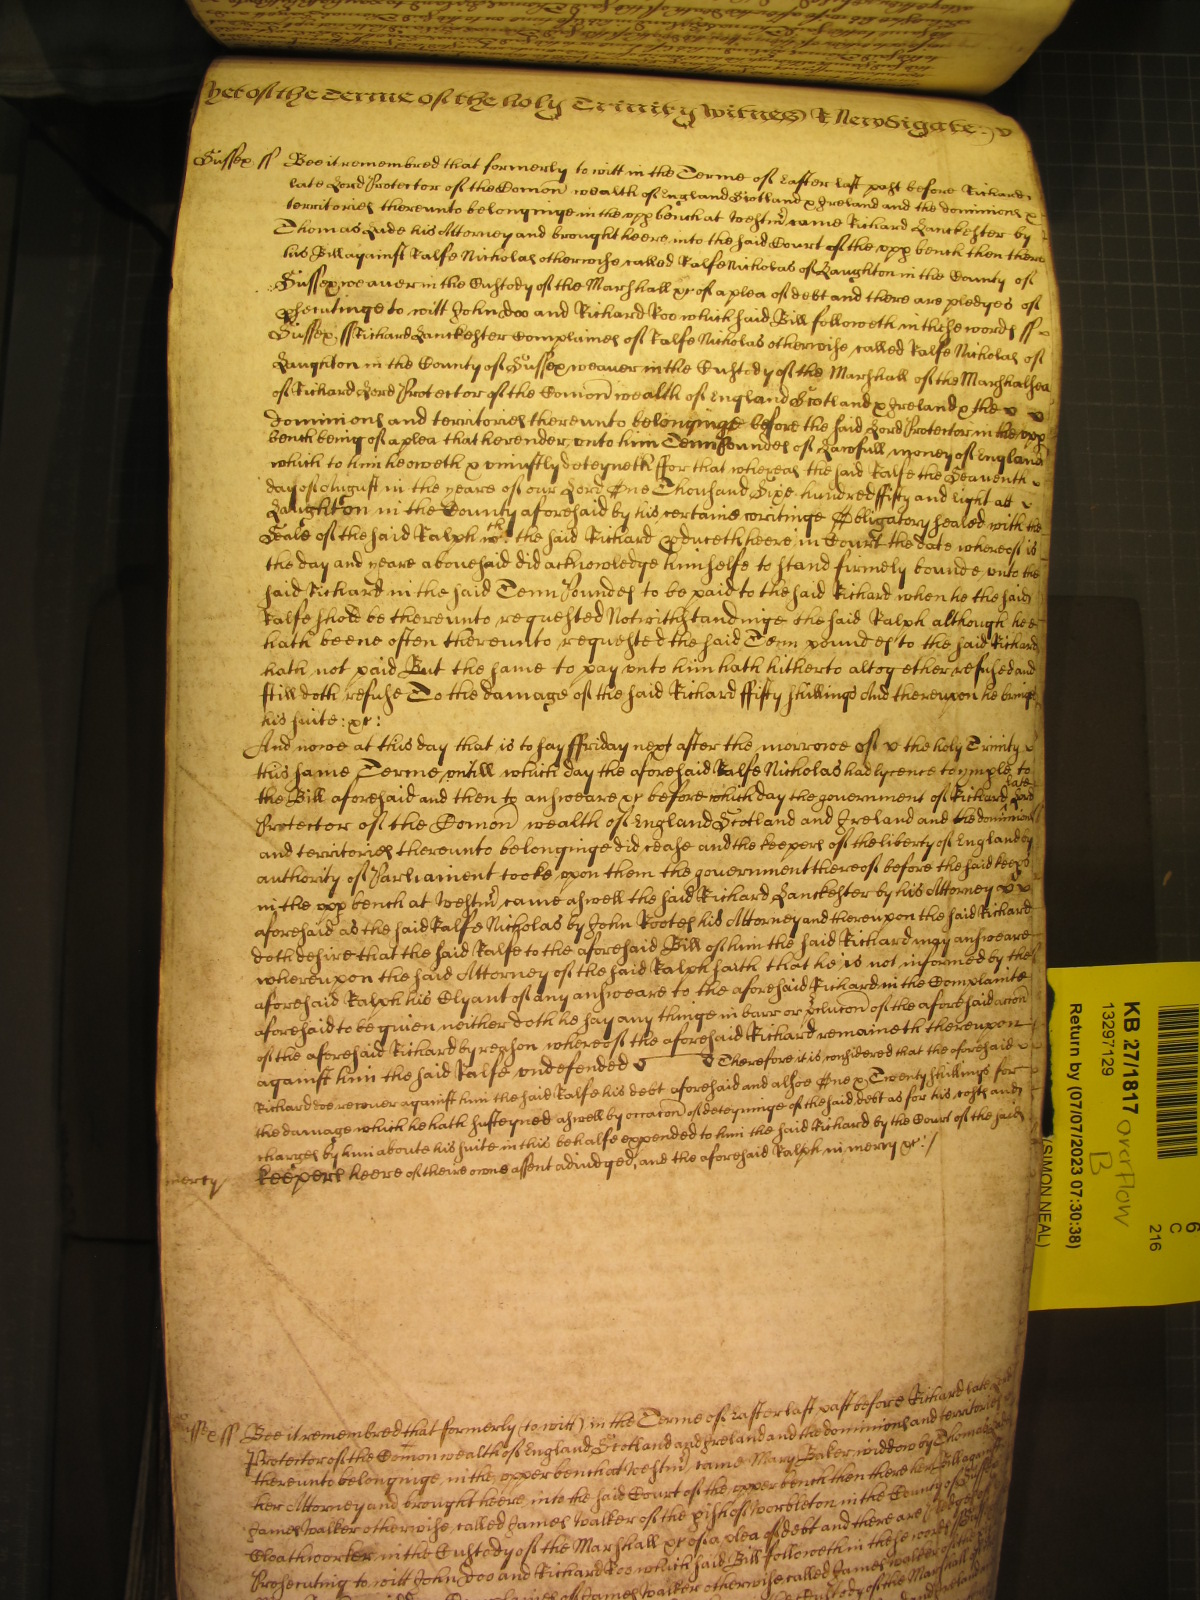 Yet of the Terme of the holy Trinity Witnes R Newdigate:
Sussex ss Bee it remembred that formerly to witt in the Terme of Easter last past before Richard
late Lord Protector of the Comon wealth of England Scotland & Ireland and the dominions &
territories thereunto belonginge in the upp bench at Westmr came Richard Lanckester by
Thomas Lude his Attorney and brought heere into the said Court of the upp bench then there
his Bill against Ralfe Nicholas otherwise called Ralfe Nicholas of Laughton in the County of
Sussex weaver in the Custody of the Marshall &c of a plea of debt and there are pledges of
psecutinge to witt John Doo and Richard Roo which said Bill followeth in these words ss
Sussex ss Richard Lanckester Complaines of Ralfe Nicholas otherwise called Ralfe Nicholas of
Laughton in the County of Sussex weaver in the Custody of the Marshall of the Marshalsea
of Richard Lord Protector of the Comon wealth of England Scotland & Ireland & the
dominions and territories thereunto belonginge before the said Lord Protector in the upp
bench being of a plea that he render unto him Tenn Poundes of Lawfull money of England
which to him he oweth & uniustly deteyneth ffor that whereas the said Ralfe the Seaventh
day of August in the yeare of our Lord One Thousand Sixe hundred ffifty and Eight att
Laughton in the County aforesaid by his certaine writinge Obligatory sealed with the
Seale of the said Ralph wch the said Richard pduceth heere in Court the date whereof is
the day and yeare abovesaid did acknowledge himselfe to stand firmely bounde unto the
said Richard in the said Tenn Poundes to be paid to the said Richard when he the said
Ralfe shold be thereunto requested Notwithstandinge the said Ralph although hee
hath beene often thereunto requested the said Tenn pounds to the said Richard
hath not paid But the same to pay unto him hath hitherto altogether refused and
still doth refuse To the damage of the said Richard ffifty shillings And thereupon he brings
his suite: &c:
And nowe at this day that is to say ffriday next after the morrowe of the holy Trinity
this same Terme untill which day the aforesaid Ralfe Nicholas had lycence to imple to
the Bill aforesaid and then to answeare &c before which day the government of Richard late Lord
Protector of the Comon wealth of England Scotland and Ireland and the dominions
and territories thereunto belonginge did cease and the keepers of the liberty of England by
authority of Parliament tooke upon them the government thereof before the said keeps
in the upp bench at Westmr came aswell the said Richard Lanckester by his Attorney
aforesaid as the said Ralfe Nicholas by John Rootes his Attorney and thereupon the said Richard
doth desire that the said Ralfe to the aforesaid Bill of him the said Richard may answeare
whereupon the said Attorney of the said Ralph saith that he is not informed by the
aforesaid Ralph his Clyant of any answeare to the aforesaid Richard in the Complainte
aforesaid to be given neither doth he say any thinge in barr or pclucon of the aforesaid accon
of the aforesaid Richard by reason whereof the aforesaid Richard remaineth thereupon
against him the said Ralfe undefended Therefore it is considered that the aforesaid
Richard doe recover against him the said Ralfe his debt aforesaid and alsoe One & Twenty shillings for
the damage which he hath susteyned aswell by occacon of deteyninge of the said debt as for his costs and
charges by him aboute his suite in this behalfe expended to him the said Richard by the Court of the said
keepers heere of theire owne assent adiudged, and the aforesaid Ralph in mercy &c:/
mercy
Sussex ss Bee it remembred that formerly (to witt) in the Terme of Easter last past before Richard late Lord
Protector of the Comon wealth of England Scotland and Ireland and the dominions and territories
thereunto belonginge, in the upper bench at Westmr came Mary Baker widdow by Thomas
her Attorney and brought heere into the said Court of the upper bench then there her Bill against
James Walker otherwise called James Walker of the pish of Warbleton in the County of Sussex
Cloathworker in the Custody of the Marshall &c of a plea of debt and there are pledges of
Prosecuting to witt John Doo and Richard Roo which said Bill followeth in these words Sussex
of James Walker otherwise called James Walker of the
KB 27/1817 overflow
B
13297129
Return by (07/07/2023 07:30:38)
(SIMON NEAL)
6
C
216